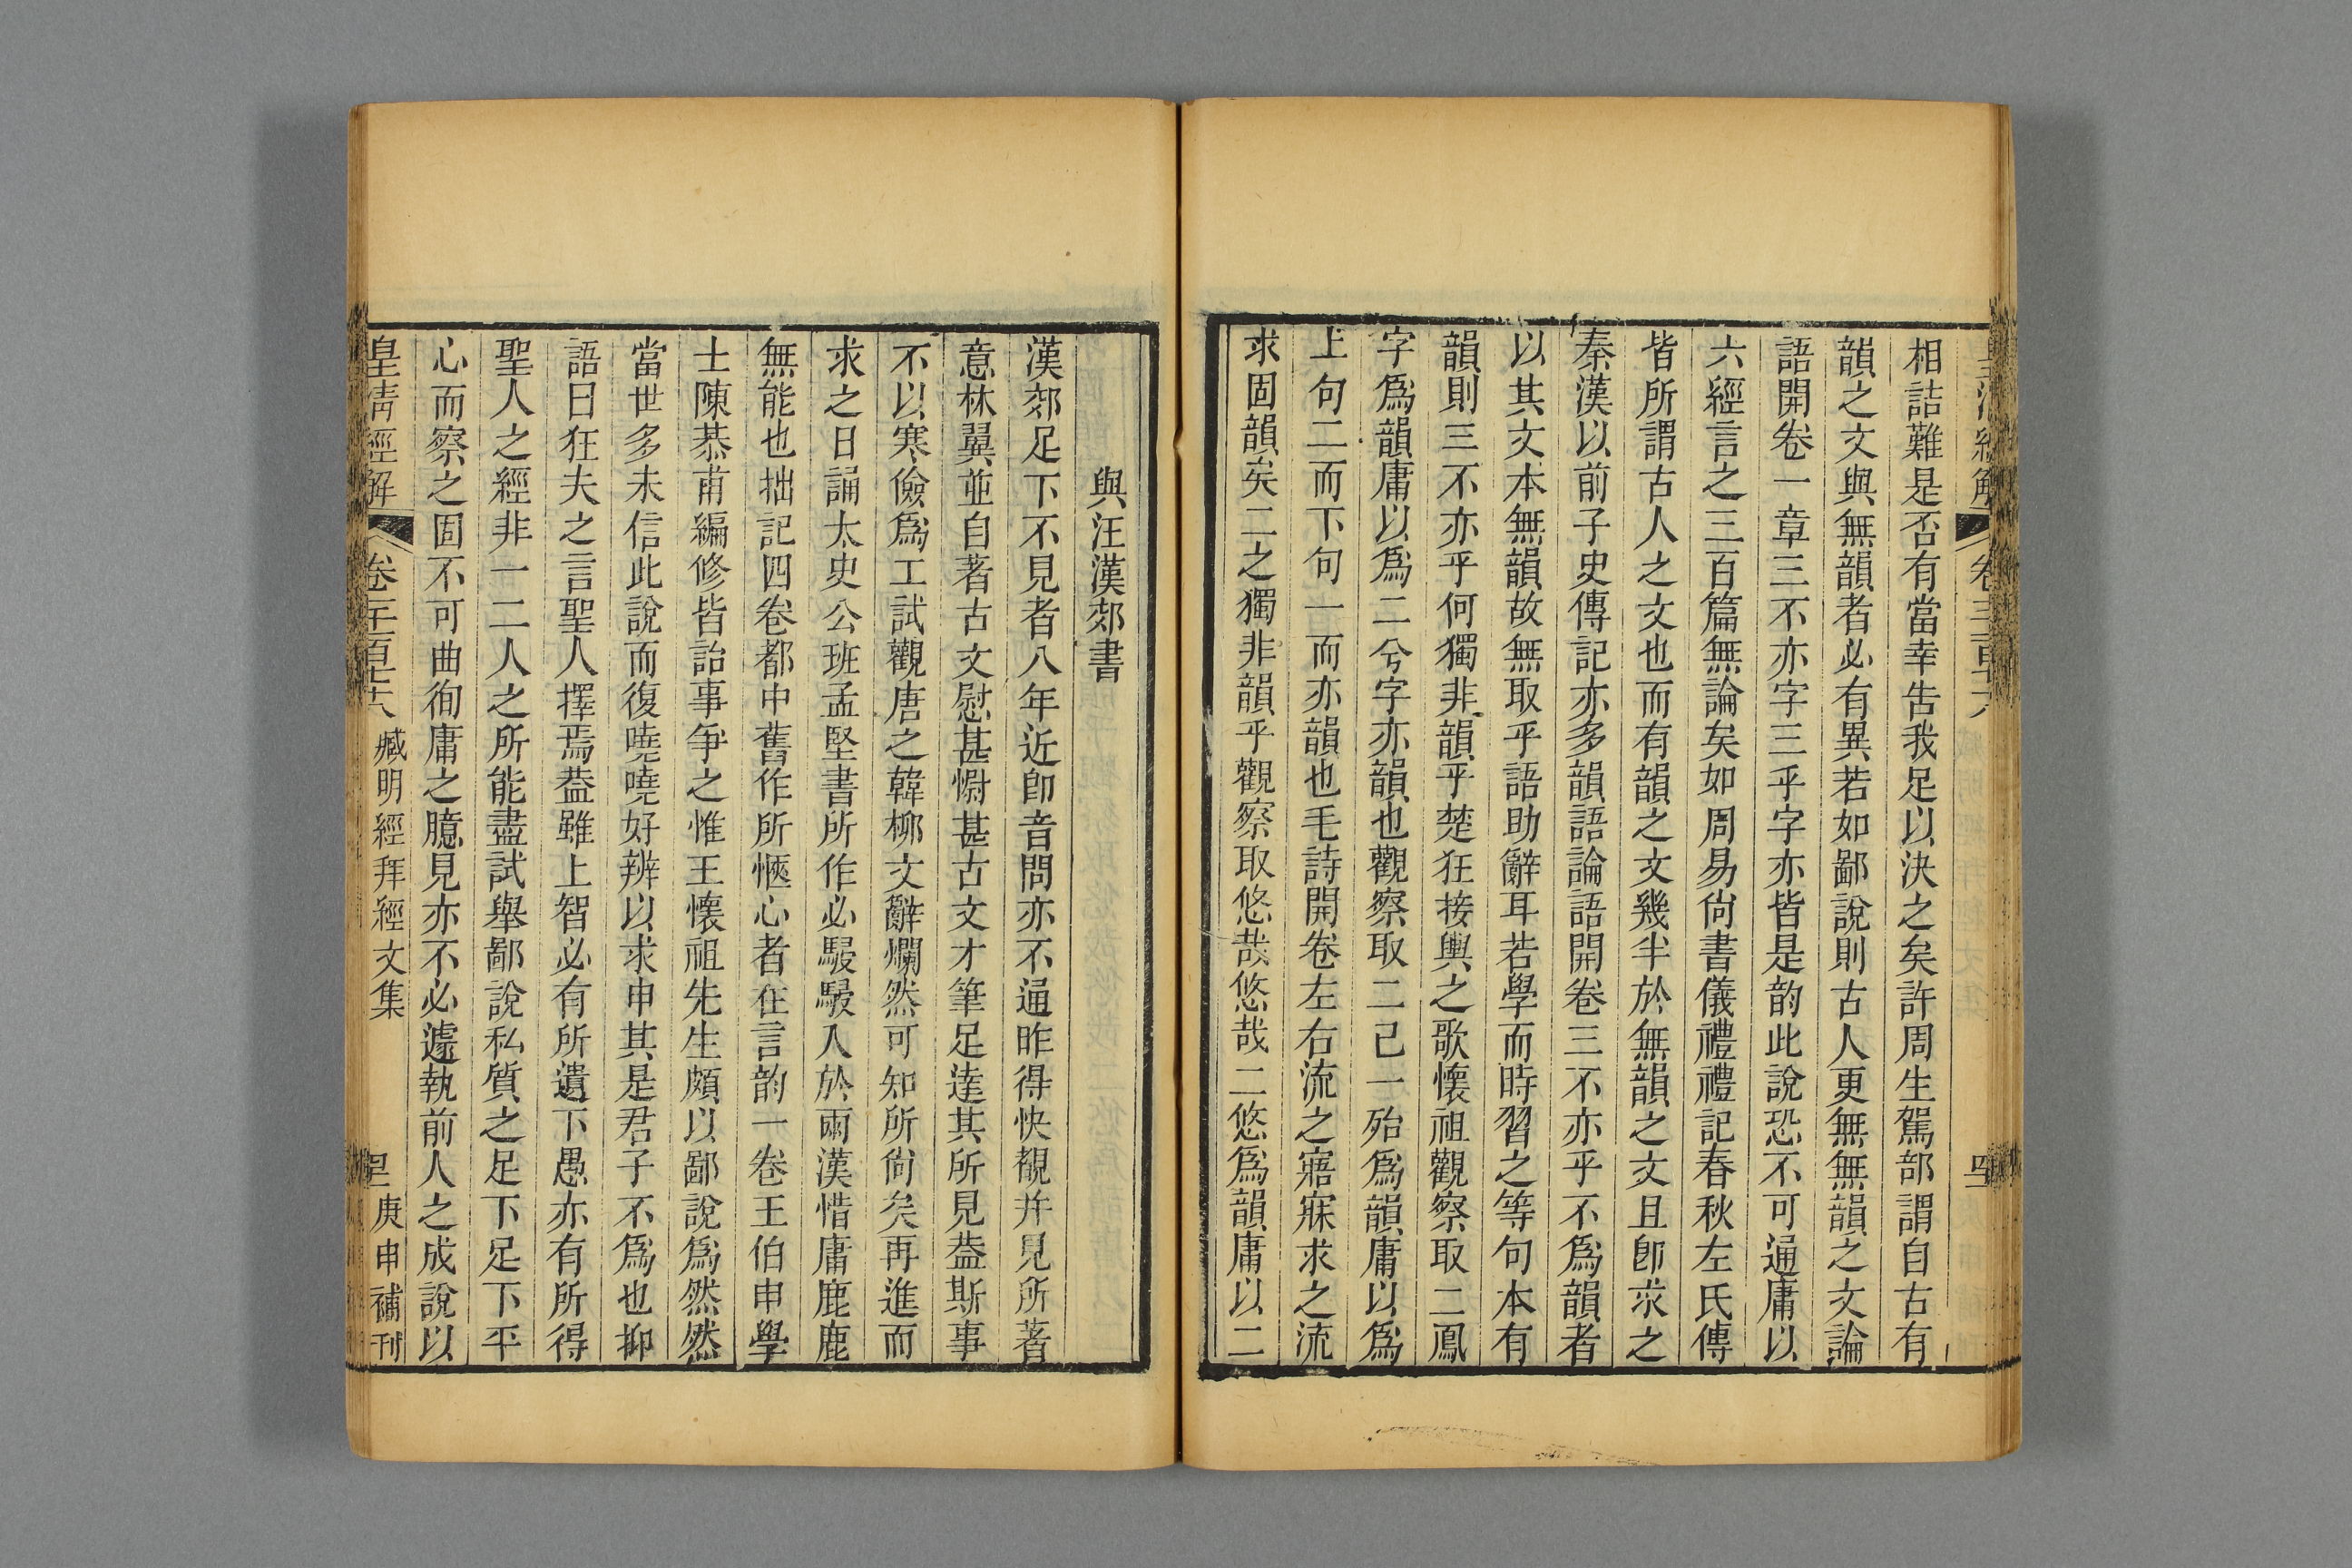 相詰難是否有當幸告我足以決之矣許周生駕部謂自古有
韻之文與無韻者必有異若如鄙說則古人更無無韻之文論
語開卷一章三不亦字三乎字亦皆是韵此說恐不可通庸以
六經言之三百篇無論矣如周易尙書儀禮禮記春秋左氏傳
皆所謂古人之文也而有韻之文幾半於無韻之文且卽求之
秦漢以前子史傳記亦多韻語論語開卷三不亦乎不爲韻者
以其文本無韻故無取乎語助辭耳若學而時習之等句本有
韻則三不亦乎何獨非韻乎楚狂接輿之歌懷祖觀察取二鳳
字爲韻庸以爲二兮字亦韻也觀察取二已一殆爲韻庸以爲
上句二而下句一而亦韻也毛詩開卷左右流之寤寐求之流
求固韻矣二之獨非韻乎觀察取悠哉悠哉二悠爲韻庸以二
與汪漢郊書
漢郊足下不見者八年近卽音問亦不通昨得快覩并見所著
意林翼並自著古文慰甚慰甚古文才筆足達其所見葢斯事
不以寒儉爲工試觀唐之韓柳文辭爛然可知所尙矣再進而
求之日誦太史公班孟堅書所作必駸駸入於兩漢惜庸鹿鹿
無能也拙記四卷都中舊作所愜心者在言韵一卷王伯申學
士陳恭甫編修皆詒事爭之惟王懷祖先生頗以鄙說爲然然
當世多未信此說而復嘵嘵好辨以求申其是君子不爲也抑
語曰狂夫之言聖人擇焉葢雖上智必有所遺下愚亦有所得
聖人之經非一二人之所能盡試舉鄙說私質之足下足下平
心而察之固不可曲徇庸之臆見亦不必遽執前人之成說以
皇清經解 卷千一百七十八 臧明經拜經文集 庚申補刊